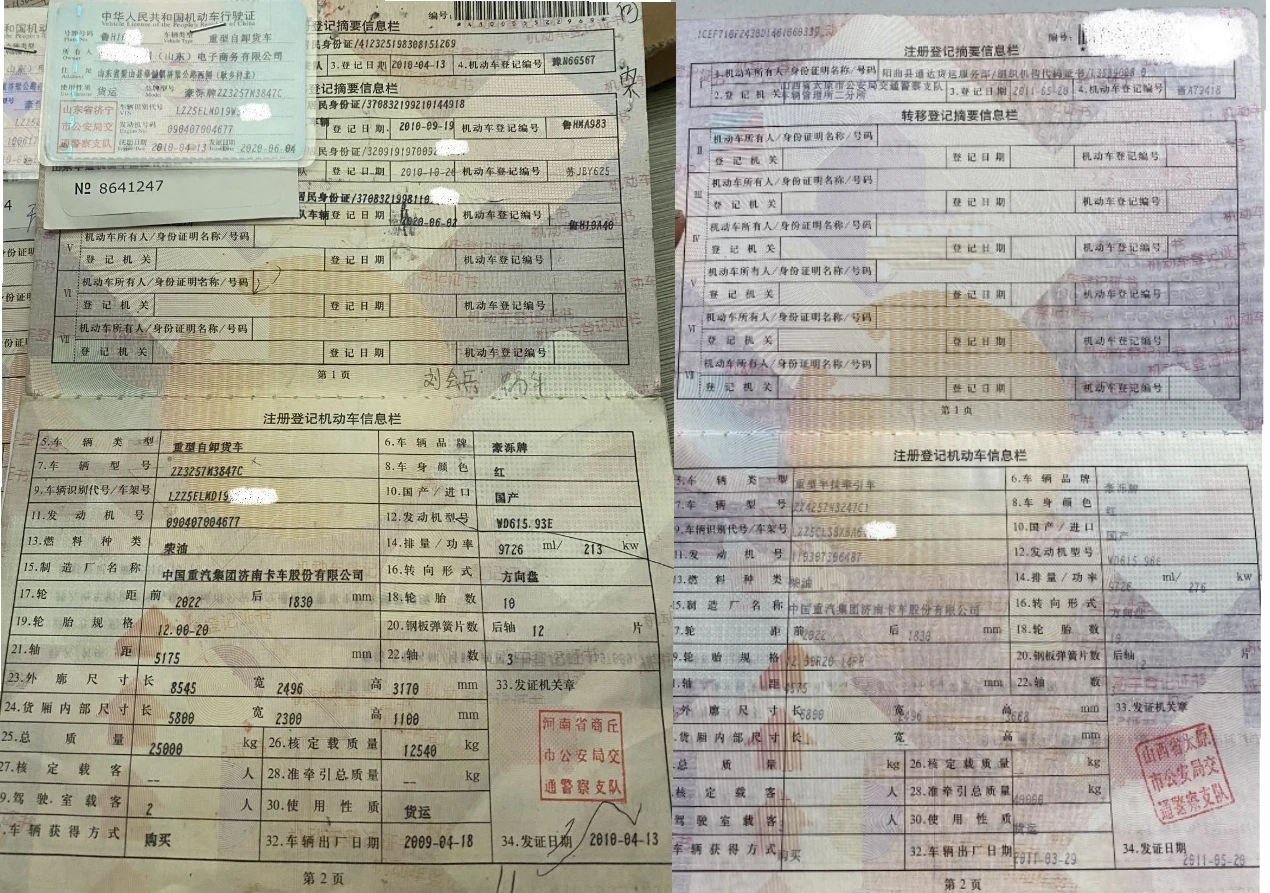 中华人民共和国机动车行驶证
Vehicle License of the People's Republic of China
号牌号码 鲁H1 车辆类型 重型自卸货车
所有人 (山东)电子商务有限公司
住址
使用性质 货运 品牌型号 豪泺牌ZZ3257M3847C
山东省济宁市公安局交通警察支队
车辆识别代号 VIN LZZ5ELMD19W
发动机号码 090407004677
注册日期 2010-04-13 发证日期 2020-06-04
№ 8641247
登记摘要信息栏
编号:
民身份证/412325198308151269
3.登记日期 2010-04-13 4.机动车登记编号 豫N66567
登记摘要信息栏
民身份证/370832199210144918
登记日期 2010-09-19 机动车登记编号 鲁HMA983
民身份证/320919197009
登记日期 2010-10-26 机动车登记编号 苏JBY625
居民身份证/3708321998110
登记日期 2020-06-02 机动车登记编号 鲁H10A40
V 机动车所有人/身份证明名称/号码
登记机关 登记日期 机动车登记编号
VI 机动车所有人/身份证明名称/号码
登记机关 登记日期 机动车登记编号
VII 机动车所有人/身份证明名称/号码
登记机关 登记日期 机动车登记编号
第1页
注册登记机动车信息栏
5.车辆类型 重型自卸货车 6.车辆品牌 豪泺牌
7.车辆型号 ZZ3257M3847C 8.车身颜色 红
9.车辆识别代号/车架号 LZZ5ELMD19 10.国产/进口 国产
11.发动机号 090407004677 12.发动机型号 WD615.93E
13.燃料种类 柴油 14.排量/功率 9726 ml/ 213 kw
15.制造厂名称 中国重汽集团济南卡车股份有限公司 16.转向形式 方向盘
17.轮距 前 2022 后 1830 mm 18.轮胎数 10
19.轮胎规格 12.00-20 20.钢板弹簧片数 后轴 12 片
21.轴距 5175 mm 22.轴数 3
23.外廓尺寸 长 8545 宽 2496 高 3170 mm 33.发证机关章
24.货厢内部尺寸 长 5800 宽 2300 高 1100 mm
25.总质量 25000 kg 26.核定载质量 12540 kg
27.核定载客 -- 人 28.准牵引总质量 -- kg
9.驾驶室载客 2 人 30.使用性质 货运
.车辆获得方式 购买 32.车辆出厂日期 2009-04-18 34.发证日期 2010-04-13
河南省商丘市公安局交通警察支队
第2页
注册登记摘要信息栏
编号:
1.机动车所有人/身份证明名称/号码 阳曲县通达货运服务部/组织机构代码证书/
2.登记机关 山西省太原市公安局交通警察支队车辆管理所二分所 3.登记日期 2011-05-20 4.机动车登记编号 晋A79418
转移登记摘要信息栏
II 机动车所有人/身份证明名称/号码
登记机关 登记日期 机动车登记编号
III 机动车所有人/身份证明名称/号码
登记机关 登记日期 机动车登记编号
IV 机动车所有人/身份证明名称/号码
登记机关 登记日期 机动车登记编号
V 机动车所有人/身份证明名称/号码
登记机关 登记日期 机动车登记编号
VI 机动车所有人/身份证明名称/号码
登记机关 登记日期 机动车登记编号
VII 机动车所有人/身份证明名称/号码
登记机关 登记日期 机动车登记编号
第1页
注册登记机动车信息栏
5.车辆类型 重型半挂牵引车 6.车辆品牌 豪泺牌
7.车辆型号 ZZ4257N3247C1 8.车身颜色 红
9.车辆识别代号/车架号 10.国产/进口 国产
11.发动机号 12.发动机型号
13.燃料种类 柴油 14.排量/功率 9726 ml/ 276 kw
15.制造厂名称 中国重汽集团济南卡车股份有限公司 16.转向形式 方向盘
7.轮距 前 2022 后 1830 mm 18.轮胎数 10
9.轮胎规格 20.钢板弹簧片数 后轴 片
1.轴距 mm 22.轴数
外廓尺寸 长 6800 宽 2496 高 3668 mm 33.发证机关章
货厢内部尺寸 长 宽 高 mm
总质量 kg 26.核定载质量 kg
核定载客 人 28.准牵引总质量 kg
驾驶室载客 人 30.使用性质 货运
车辆获得方式 购买 32.车辆出厂日期 2011-03-29 34.发证日期 2011-05-20
山西省太原市公安局交通警察支队
第2页